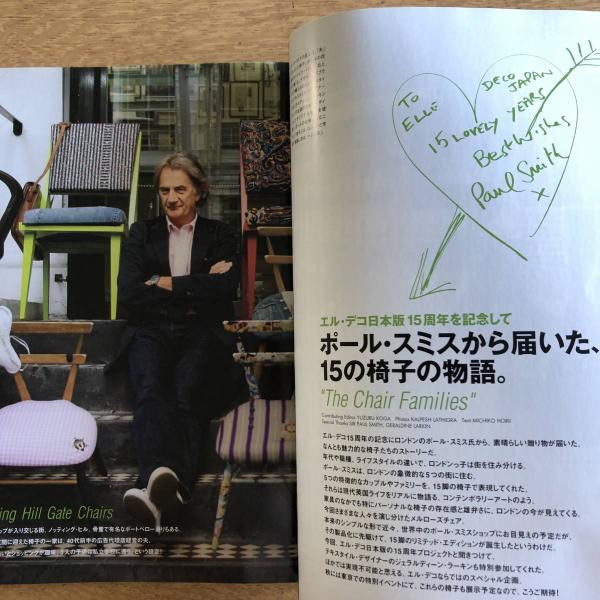 ing Hill Gate Chairs
ップが入り交じる街、ノッティング・ヒル。骨董で有名なポートベローもある。
TO
ELLE
DECO JAPAN
15 LOVELY YEARS
Best Wishes
Paul Smith
x
エル・デコ日本版15周年を記念して
ポール・スミスから届いた、
15の椅子の物語。
"The Chair Families"
Contributing Editor YUZURU KOGA Photos KALPESH LATHIGRA Text MICHIKO HORII
Special Thanks SIR PAUL SMITH, GERALDINE LARKIN
エル・デコ15周年の記念にロンドンのポール・スミス氏から、素晴らしい贈り物が届いた。
なんとも魅力的な椅子たちのストーリーだ。
年代や職種、ライフスタイルの違いで、ロンドンっ子は街を住み分ける。
ポール・スミスは、ロンドンの象徴的な5つの街に住む、
5つの特徴的なカップルやファミリーを、15脚の椅子で表現してくれた。
それらは現代英国ライフをリアルに物語る、コンテンポラリーアートのよう。
家具のなかでも特にパーソナルな椅子の存在感と雄弁さに、ロンドンの今が見えてくる。
今回さまざまな人々を演じ分けたメルローズチェア。
本来のシンプルな形で近々、世界中のポール・スミスショップにお目見えの予定だが、
その製品化に先駆けて、15脚のリミテッド・エディションが誕生したというわけだ。
今回、エル・デコ日本版の15周年プロジェクトと聞きつけて、
テキスタイル・デザイナーのジェラルディン・ラーキンも特別参加してくれた。
ほかでは実現不可能と思える、エル・デコならではのスペシャル企画。
秋には東京での特別イベントにて、これらの椅子も展示予定なので、こうご期待！